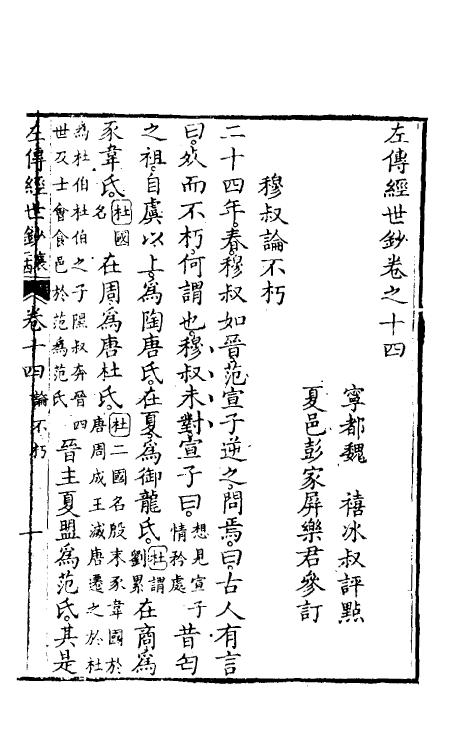 左傳經世鈔卷之十四
寧都魏　禧冰叔評點
夏邑彭家屏樂君參訂
穆叔論不朽
二十四年春穆叔如晉范宣子逆之問焉曰古人有言
曰死而不朽何謂也穆叔未對宣子曰想見宣子情矜處昔匄
之祖自虞以上爲陶唐氏在夏爲御龍氏杜謂劉累在商爲
豕韋氏杜國名在周爲唐杜氏杜二國名殷末豕韋國於唐周成王滅唐遷之於杜
爲杜伯杜伯之子隰叔奔晉四世及士會食邑於范爲范氏晉主夏盟爲范氏其是
左傳經世鈔 襄 卷十四 論不朽 一